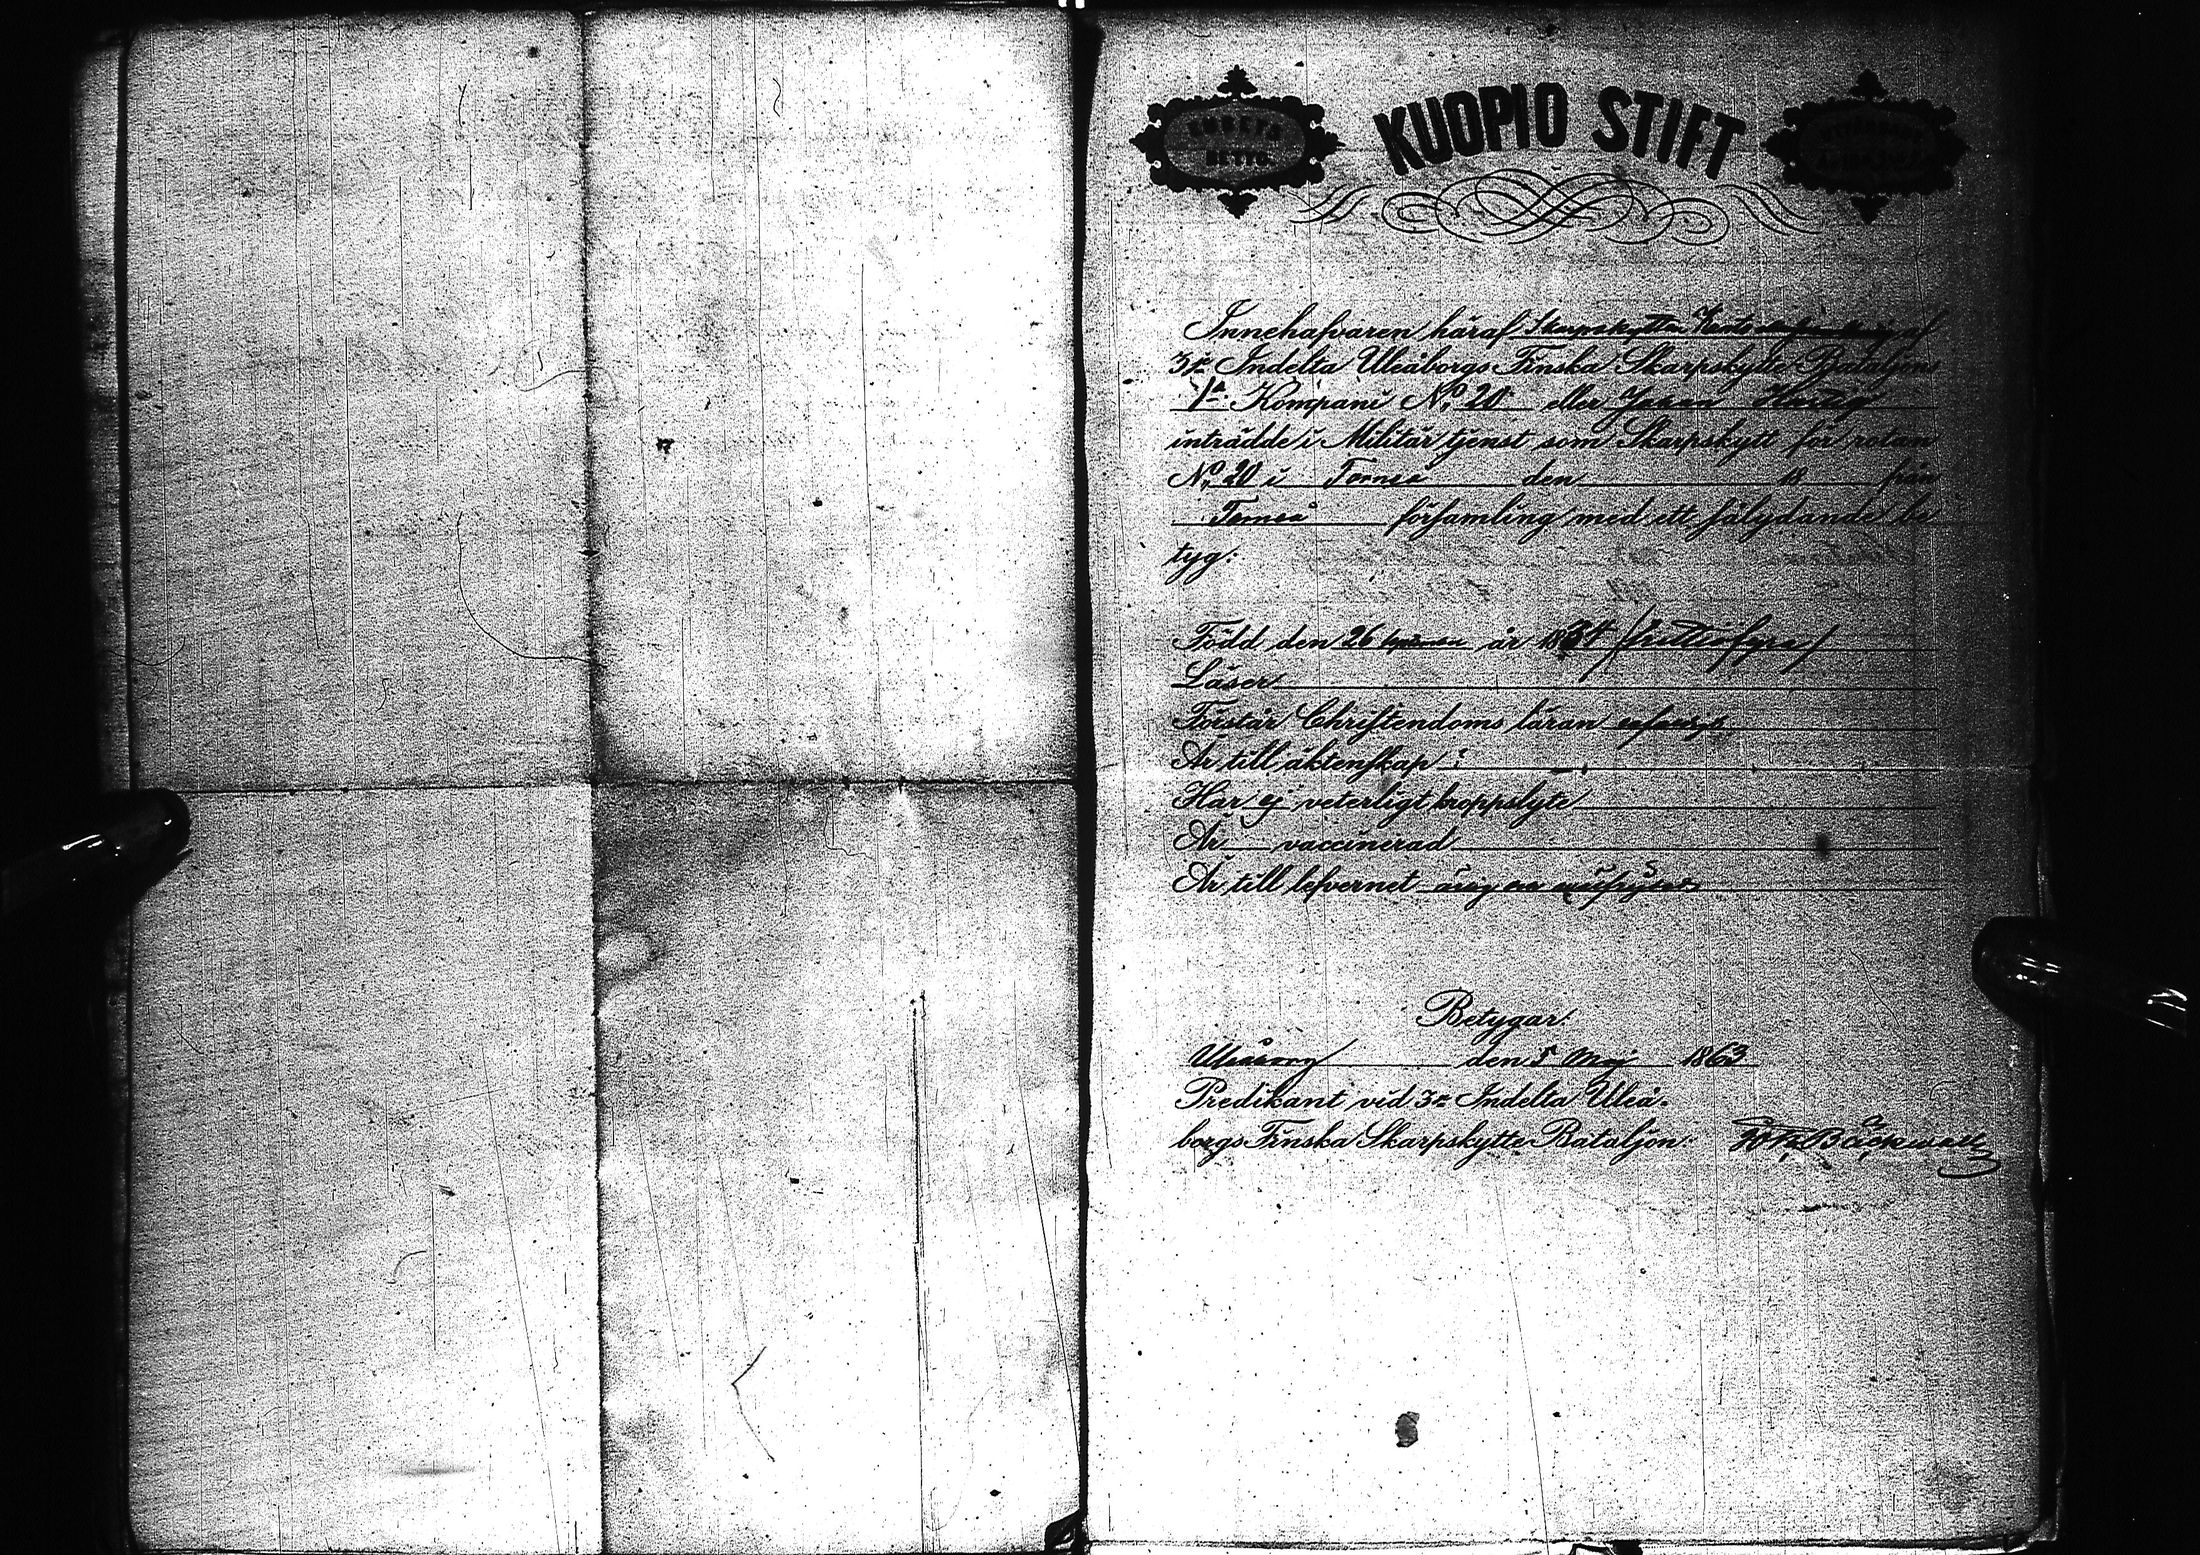 KUOPIO STIFT
Innehafvaren häraf Skarpskytten
3je Indelta Uleåborgs Finska Skarpskytte Bataljons
1a Kompani No 20 eller Johan
inträdde i Militär tjenst som Skarpskytt för rotan
No 20 i Torneå den 18 från
Torneå församling med ett så lydande be
tyg:
Född den 26 år 1834 /trettiofyra/
Läser
Förstår Christendoms läran
Är till äktenskap
Har ej veterligt kroppslyte
Är vaccinerad
Är till lefvernet
Betygar:
Uleåborg den 5 Maj 1863
Predikant vid 3e Indelta Uleå-
borgs Finska Skarpskytte Bataljon.